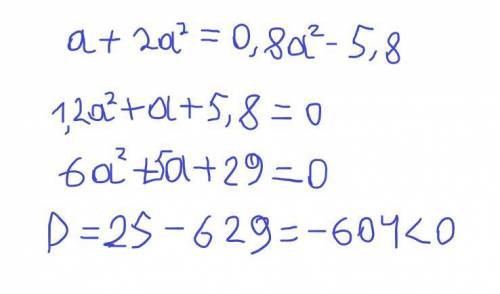 a + 2a² = 0,8a² - 5,8
1,2a² + a + 5,8 = 0
6a² + 5a + 29 = 0
D = 25 - 629 = -604 < 0